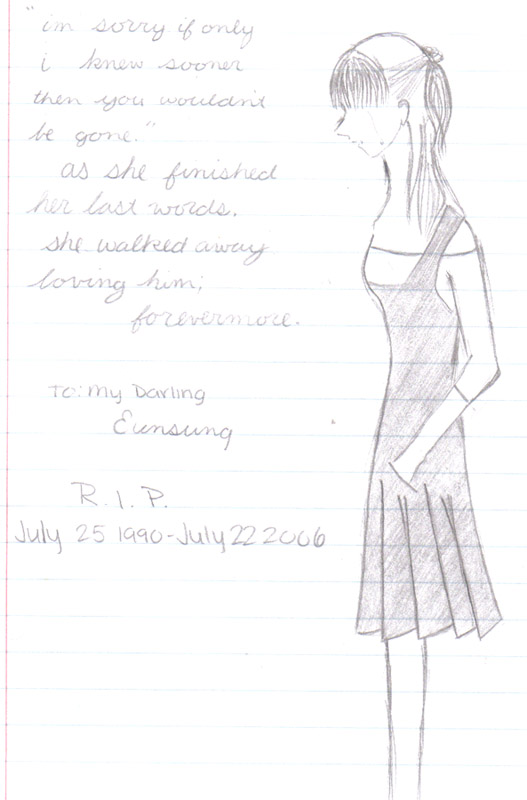 "im sorry if only
i knew sooner
then you wouldn't
be gone."
as she finished
her last words.
she walked away
loving him;
forevermore.
To: My Darling
Eunsung
R.I.P.
July 25 1990-July 22 2006